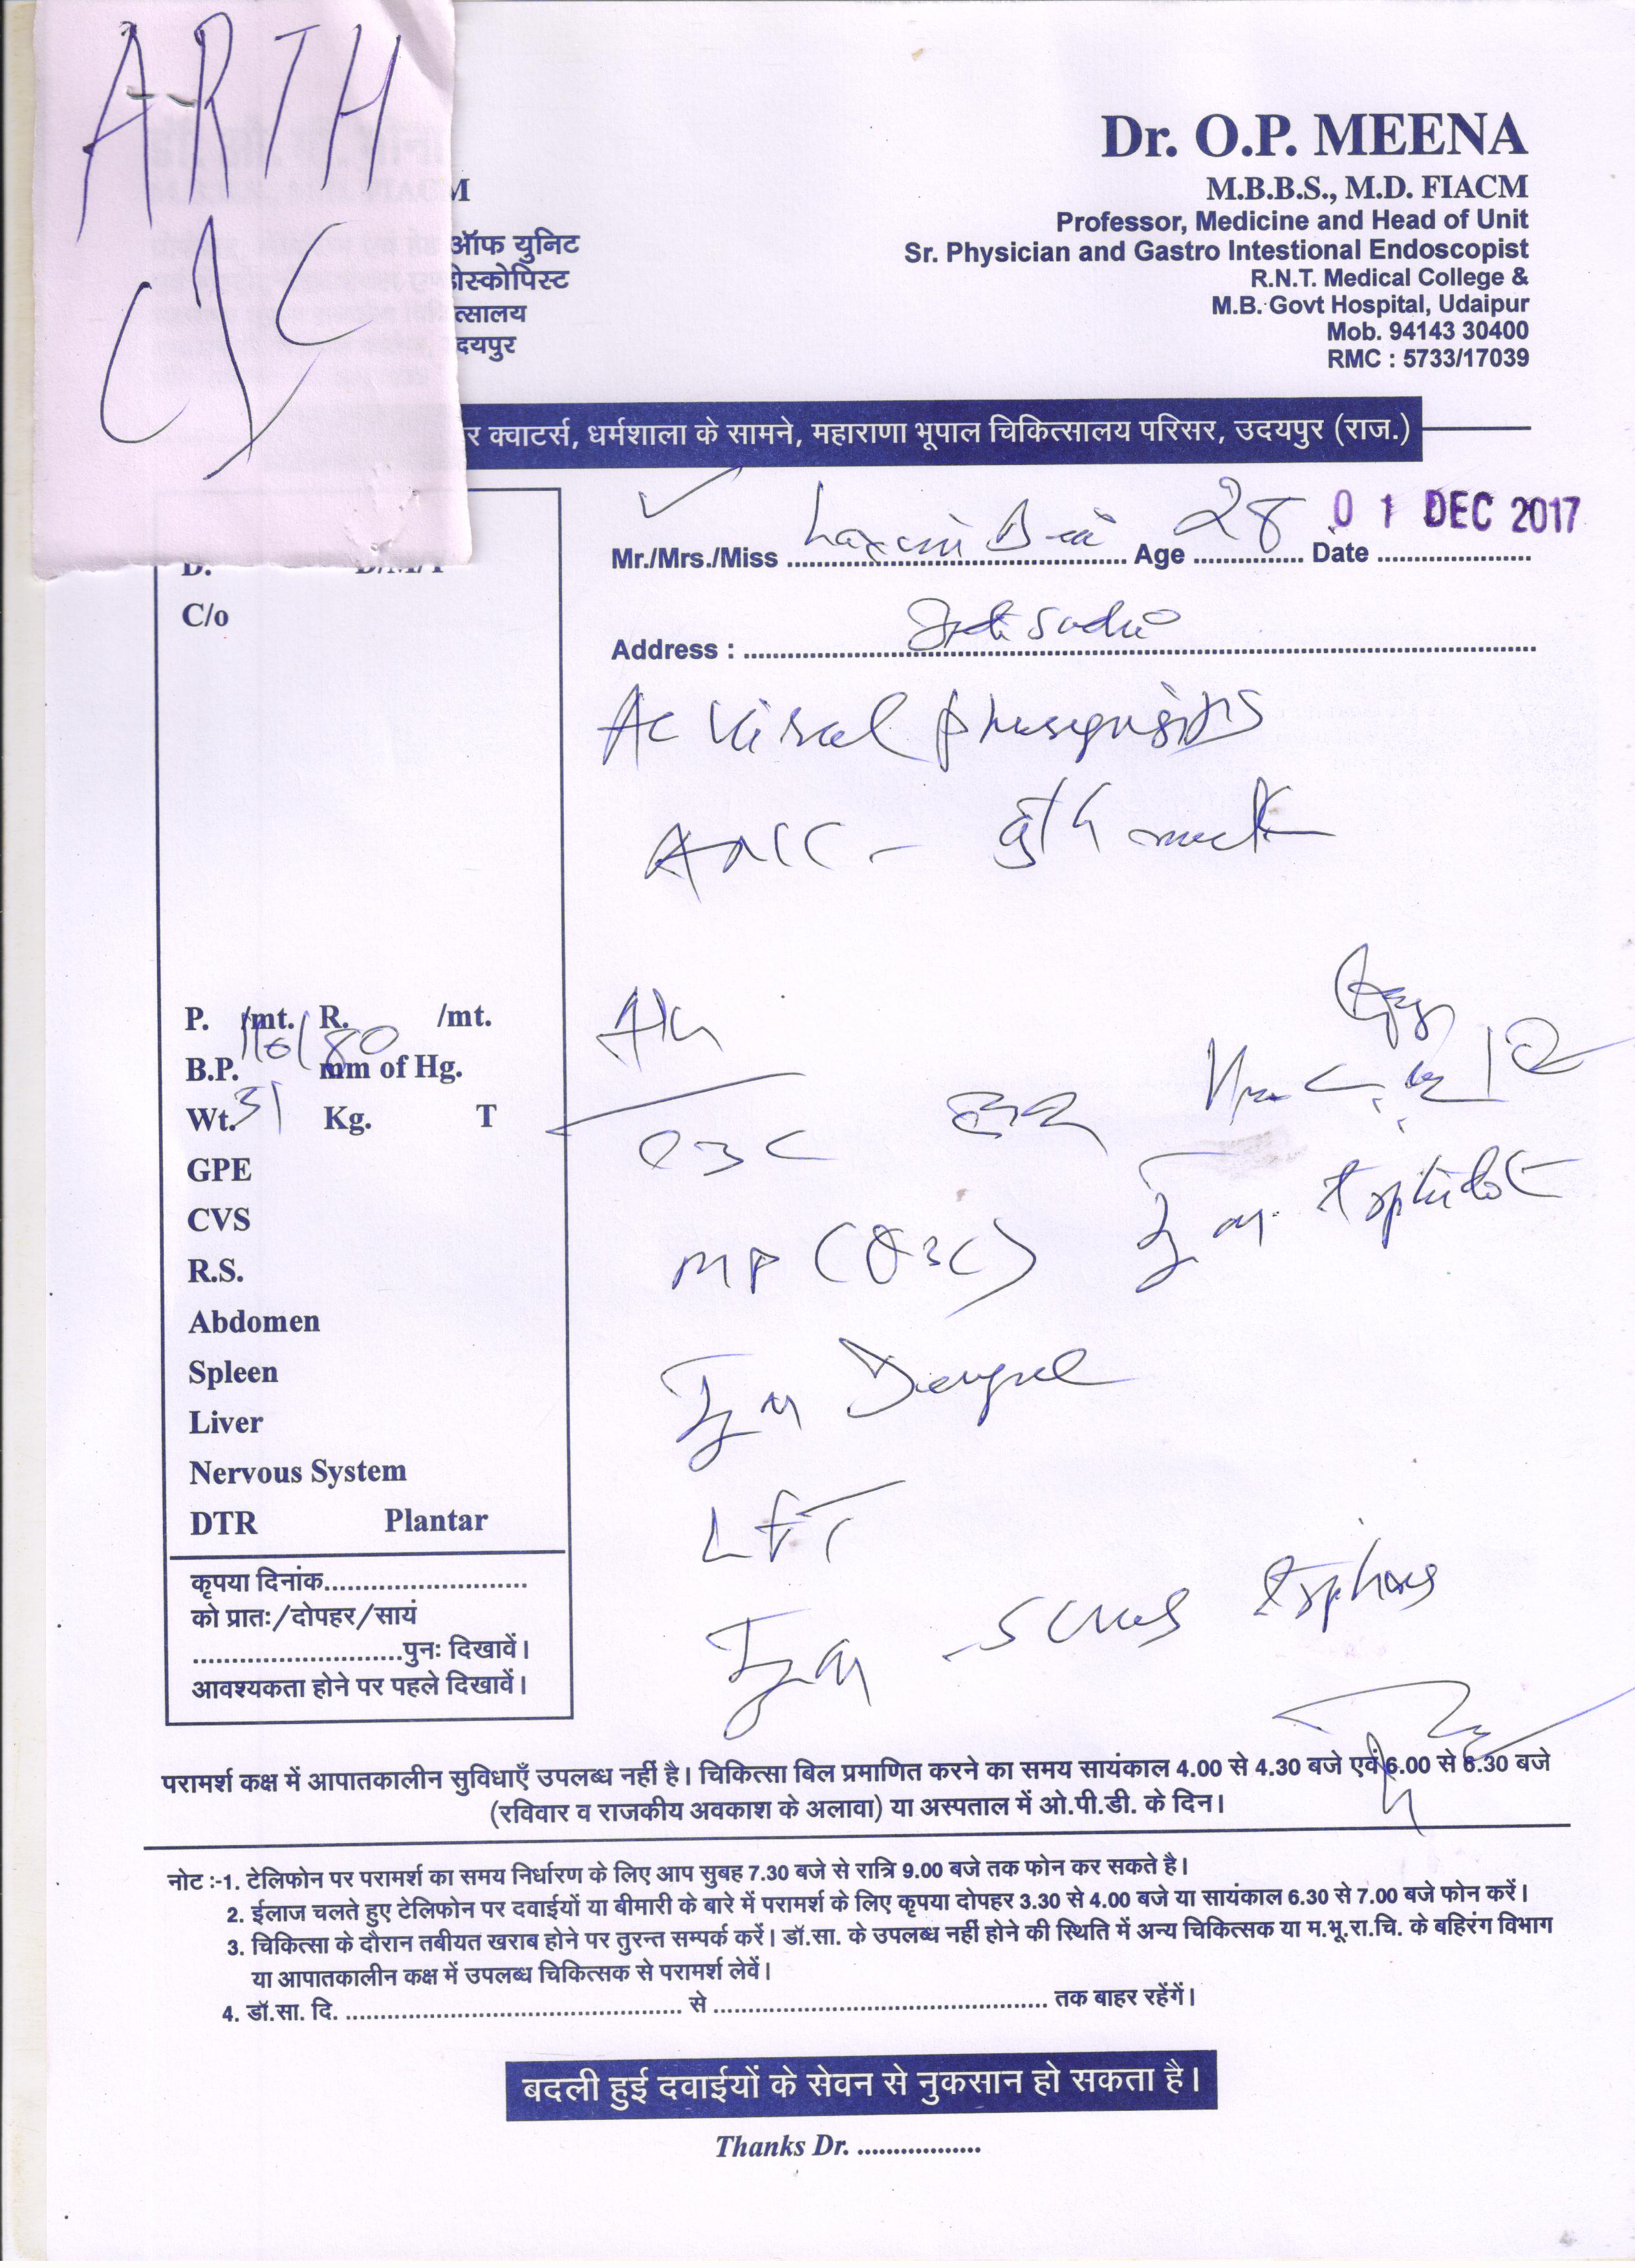 ARTH
Dr. O.P. MEENA
M.B.B.S., M.D. FIACM
Professor, Medicine and Head of Unit
Sr. Physician and Gastro Intestional Endoscopist
R.N.T. Medical College &
M.B. Govt Hospital, Udaipur
Mob. 94143 30400
RMC : 5733/17039
M
ऑफ युनिट
त्सालय
दयपुर
र क्वाटर्स, धर्मशाला के सामने, महाराणा भूपाल चिकित्सालय परिसर, उदयपुर (राज.)
Mr./Mrs./Miss Laxmi Age 28 Date 01 DEC 2017
Address :
C/o
Ac Viral
P. /mt. R. /mt.
B.P. 110/80 mm of Hg.
Wt. 31 Kg. T
GPE
CVS
R.S.
Abdomen
Spleen
Liver
Nervous System
DTR Plantar
CBC
MP
Dengue
LFT
Scrub typhus
कृपया दिनांक
को प्रातः/दोपहर/सायं
पुनः दिखावें।
आवश्यकता होने पर पहले दिखावें।
परामर्श कक्ष में आपातकालीन सुविधाएँ उपलब्ध नहीं है। चिकित्सा बिल प्रमाणित करने का समय सायंकाल 4.00 से 4.30 बजे एवं 6.00 से 6.30 बजे
(रविवार व राजकीय अवकाश के अलावा) या अस्पताल में ओ.पी.डी. के दिन।
नोट :-1. टेलिफोन पर परामर्श का समय निर्धारण के लिए आप सुबह 7.30 बजे से रात्रि 9.00 बजे तक फोन कर सकते है।
2. ईलाज चलते हुए टेलिफोन पर दवाईयों या बीमारी के बारे में परामर्श के लिए कृपया दोपहर 3.30 से 4.00 बजे या सायंकाल 6.30 से 7.00 बजे फोन करें।
3. चिकित्सा के दौरान तबीयत खराब होने पर तुरन्त सम्पर्क करें। डॉ.सा. के उपलब्ध नहीं होने की स्थिति में अन्य चिकित्सक या म.भू.रा.चि. के बहिरंग विभाग
या आपातकालीन कक्ष में उपलब्ध चिकित्सक से परामर्श लेवें।
4. डॉ.सा. दि. से तक बाहर रहेंगें।
बदली हुई दवाईयों के सेवन से नुकसान हो सकता है।
Thanks Dr.